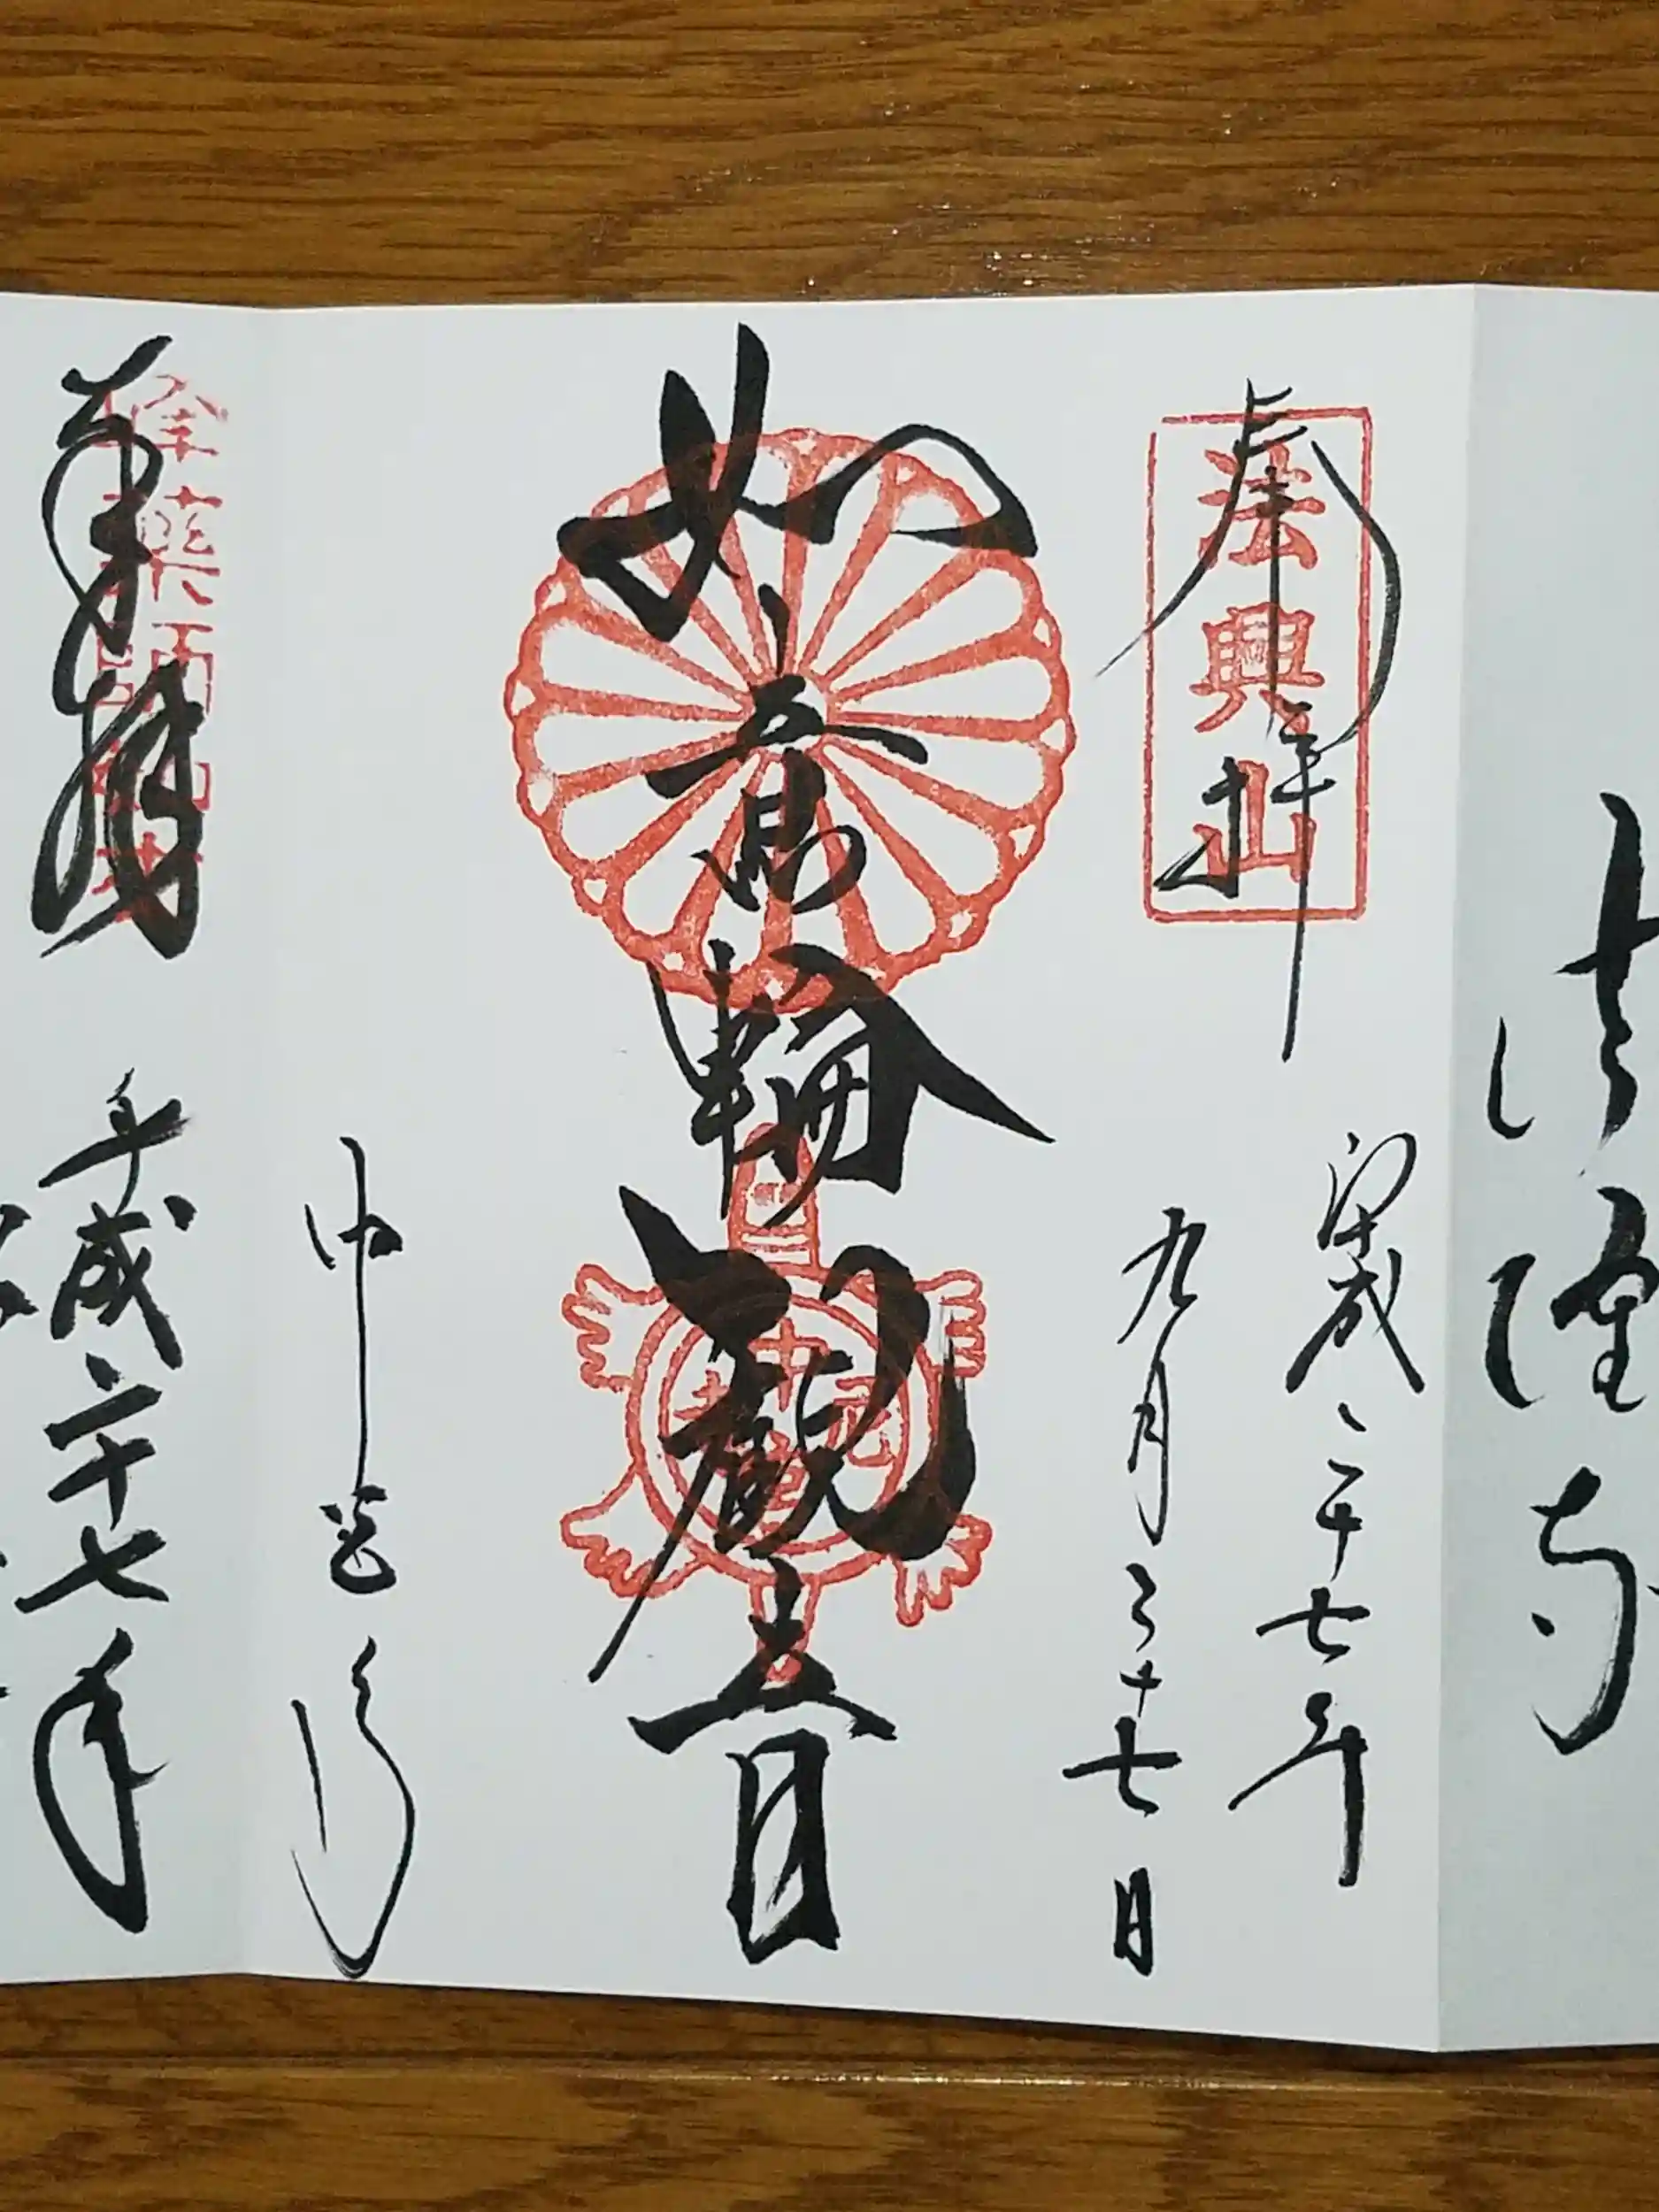 法隆寺
奉拝
法興山
平成二十七年
九月二十七日
如意輪観音
中宮寺
奉拝
平成二十七年